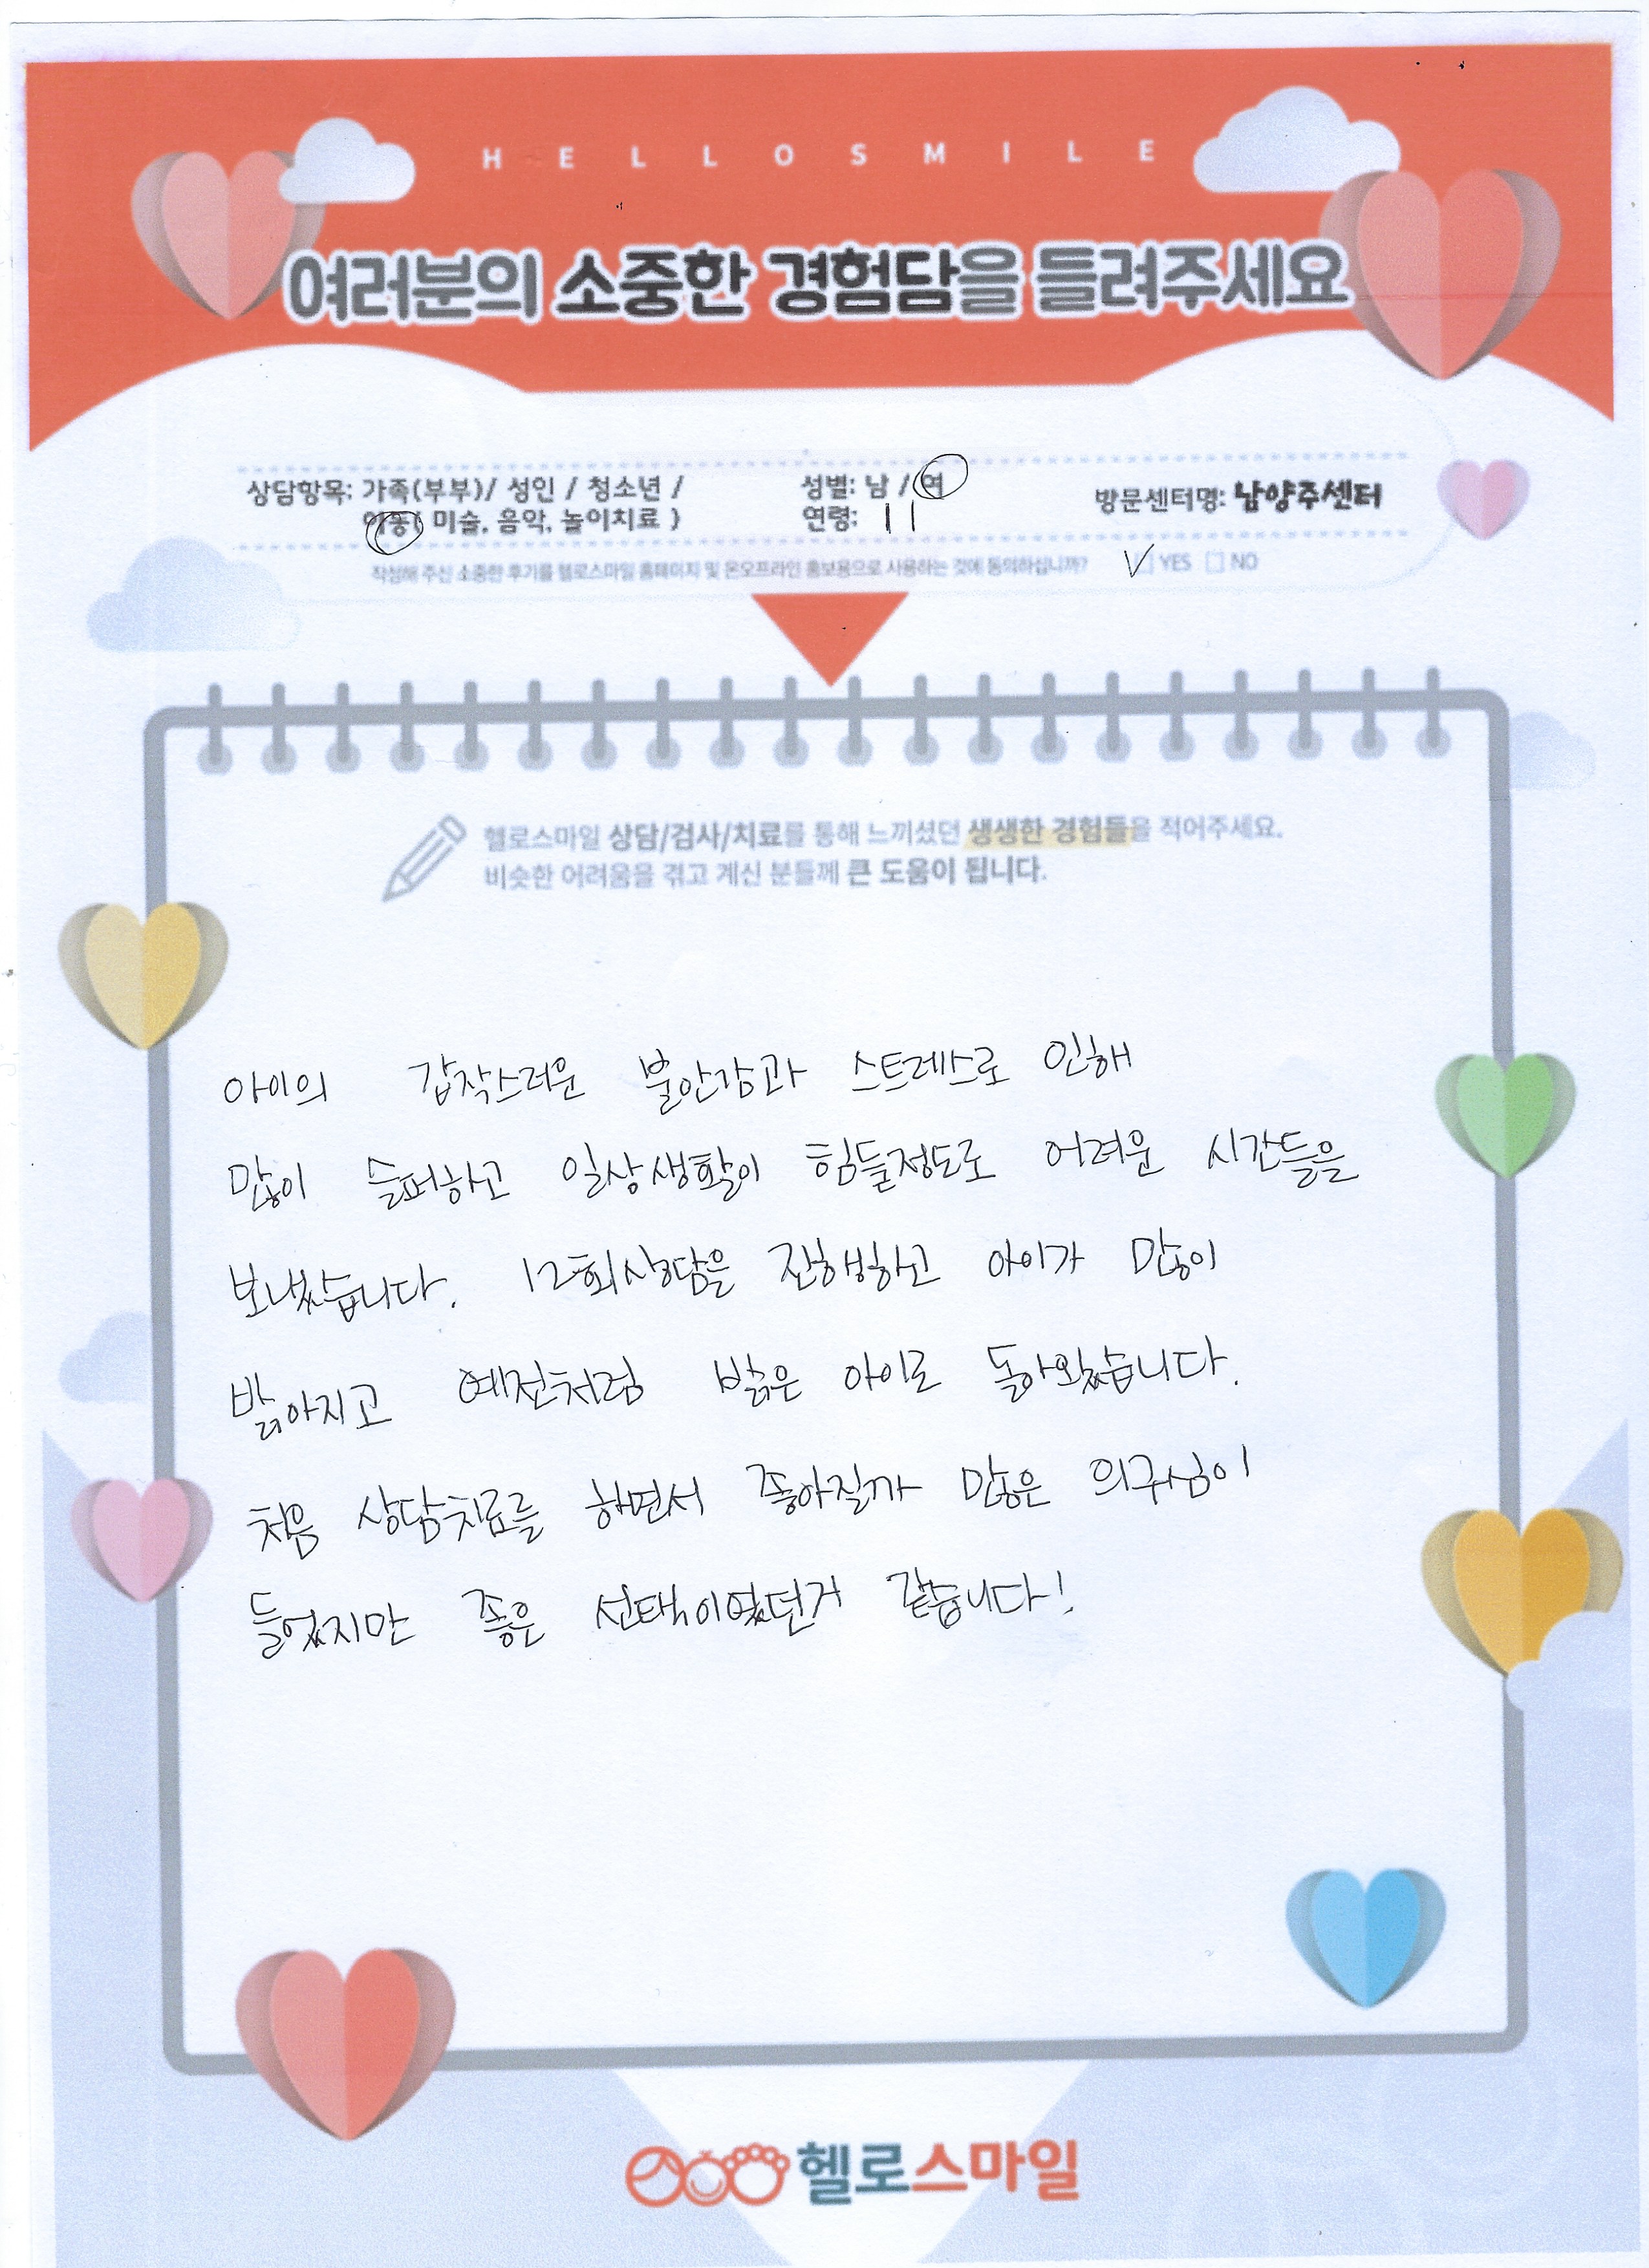 HELLOSMILE
여러분의 소중한 경험담을 들려주세요
상담항목: 가족(부부)/ 성인 / 청소년 /
아동( 미술, 음악, 놀이치료 )
성별: 남 / 여
연령: 11
방문센터명: 남양주센터
작성해 주신 소중한 후기를 헬로스마일 홈페이지 및 온오프라인 홍보용으로 사용하는 것에 동의하십니까? V YES NO
헬로스마일 상담/검사/치료를 통해 느끼셨던 생생한 경험들을 적어주세요.
비슷한 어려움을 겪고 계신 분들께 큰 도움이 됩니다.
아이의 갑작스러운 불안감과 스트레스로 인해
많이 슬퍼하고 일상생활이 힘들정도로 어려운 시간들을
보냈습니다. 12회상담을 진행하고 아이가 많이
밝아지고 예전처럼 밝은 아이로 돌아왔습니다.
처음 상담치료를 하면서 좋아질까 많은 의구심이
들었지만 좋은 선택이였던거 같습니다!
헬로스마일